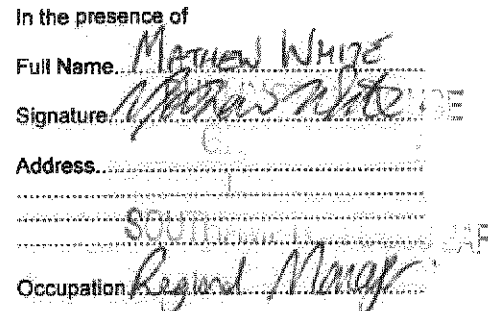 In the presence of
Full Name. MATHEW WHITE
Signature. Mathew White
Address.
Occupation Regional Manager